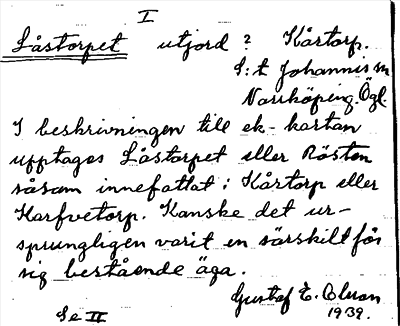 I
Låstorpet utjord? Kårtorp.
S:t Johannis sn
Norrköping. Ögl.
I beskrivningen till ek-kartan
upptages Låstorpet eller Rösten
såsom innefattat i Kårtorp eller
Karfvetorp. Kanske det ur-
sprungligen varit en särskilt för
sig bestående äga.
Gustaf E.
1939.
Se II